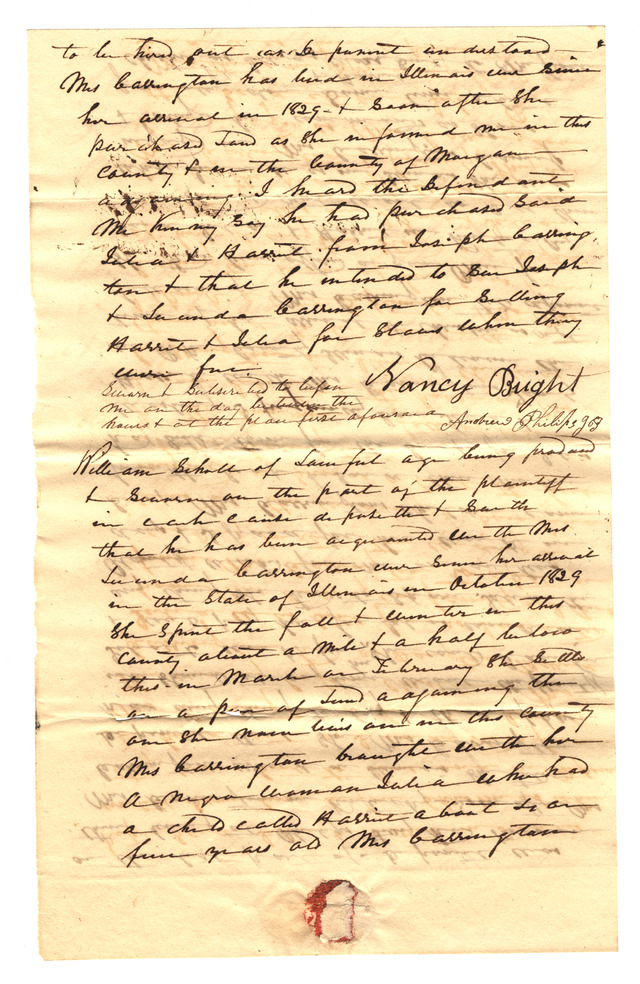 to be hired out as Deponent understood
Mrs Carrington has lived in Illinois ever since
her arrival in 1829 & Soon after She
purchased Land as She informed me in this
County & in the County of Morgan
I heard the Defendant
Mc Kinny say he had purchased said
Julia & Harriet from Joseph Carring
ton & that he intended to Sue Joseph
& Lucinda Carrington for Selling
Harriet & Julia for Slaves when they
were free.
Nancy Bright
Sworn & Subscribed to before
me on the day between the
hours & at the place first aforesaid
Andrew Philips J P
William Scholl of Lawful age being produced
& Sworn on the part of the plaintiff
in each cause deposeth & Saith
that he has been acquainted with Mrs
Lucinda Carrington ever since her arrival
in the State of Illinois in October 1829
She Spent the fall & winter in this
County about a mile & a half below
this in March or February She Settled
on a piece of Land adjoining the
one She now lives on in this County
Mrs Carrington brought with her
a negro woman Julia who had
a child called Harriet about 4 or
five years old Mrs Carrington